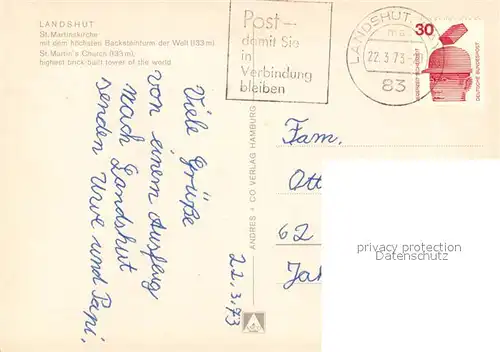 LANDSHUT
St. Martinskirche
mit dem höchsten Backsteinturm der Welt (133 m)
St. Martin's Church (133 m),
highest brick built tower of the world
Post –
damit Sie
in
Verbindung
bleiben
LANDSHUT
ma
22.3.73
83
30
JEDERZEIT SICHERHEIT
DEUTSCHE BUNDESPOST
Viele Grüße
von einem Ausflug
nach Landshut
senden Uwe und Papi.
22.3.73
ANDRES + CO VERLAG HAMBURG
Fam.
Ott
62
Jah
privacy protection
Datenschutz